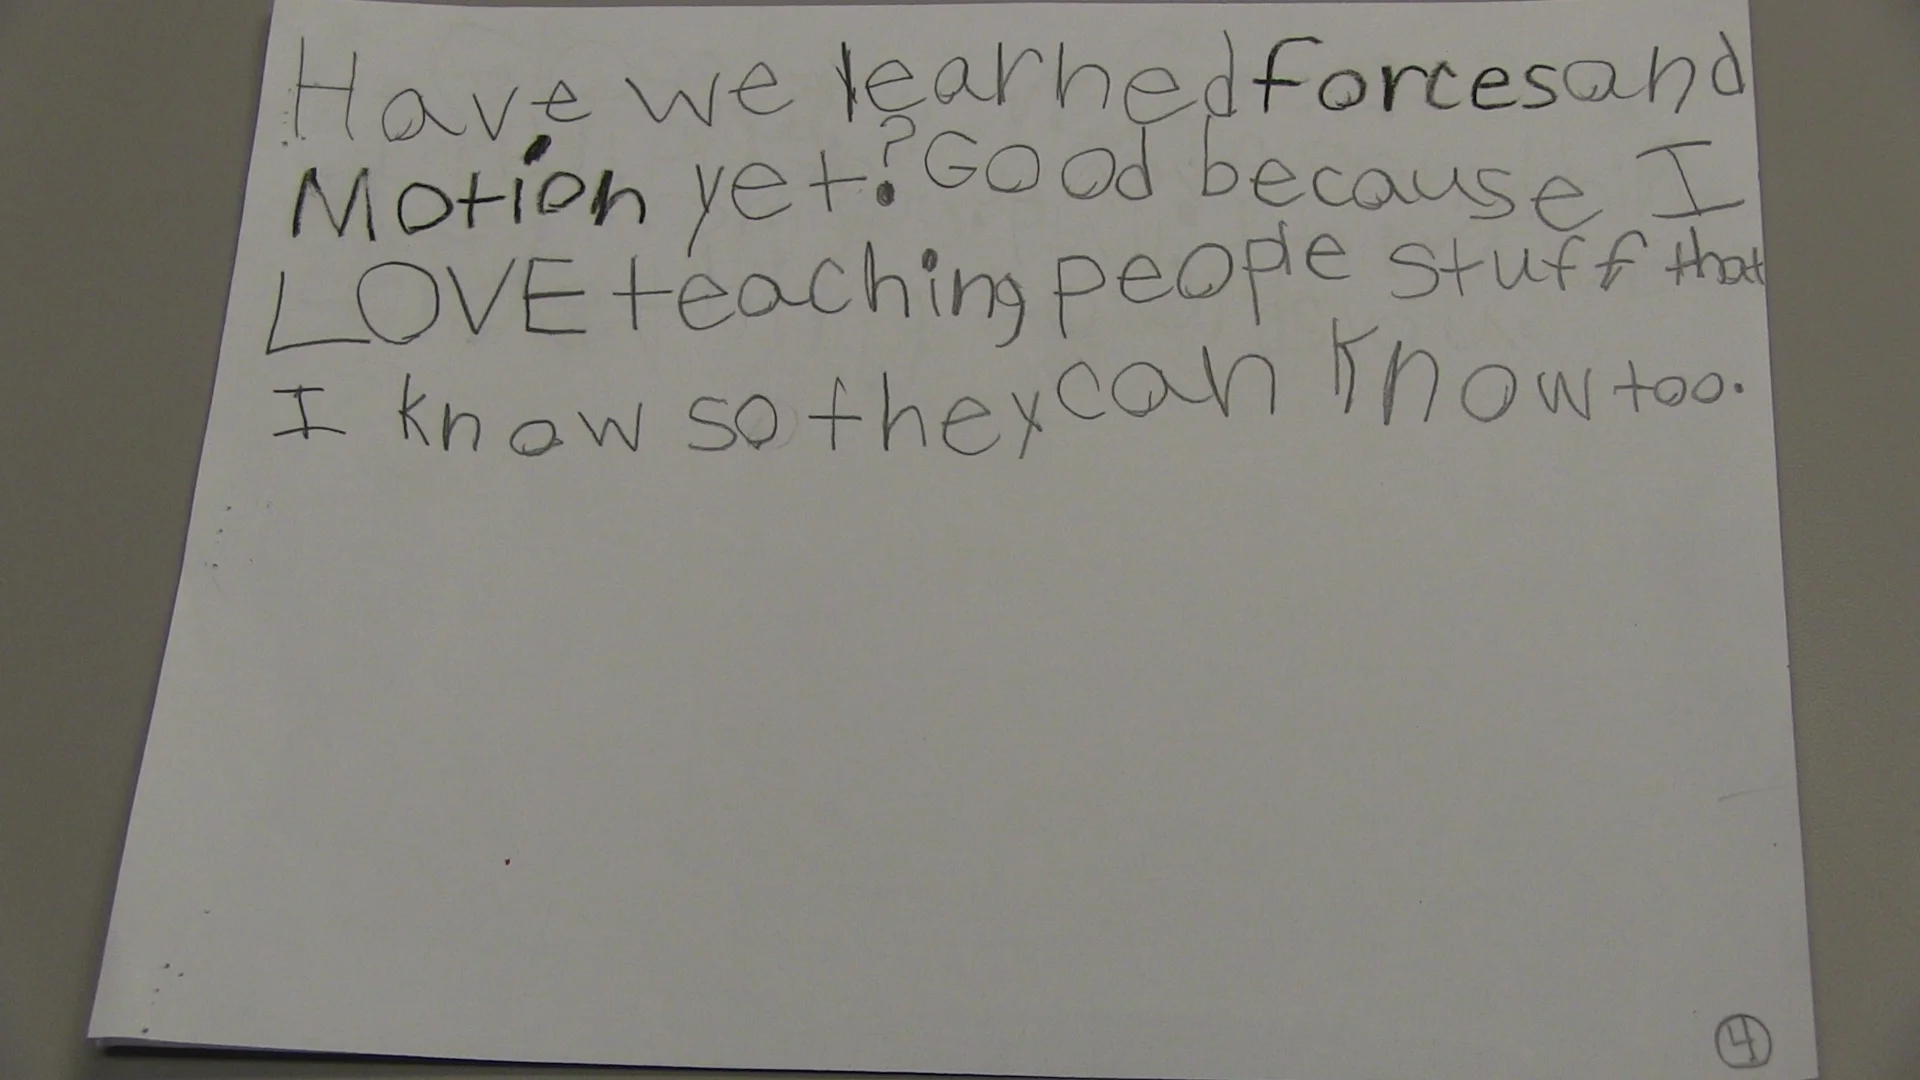 Have we learned forces and
Motion yet? Good because I
LOVE teaching people stuff that
I know so they can know too.
4